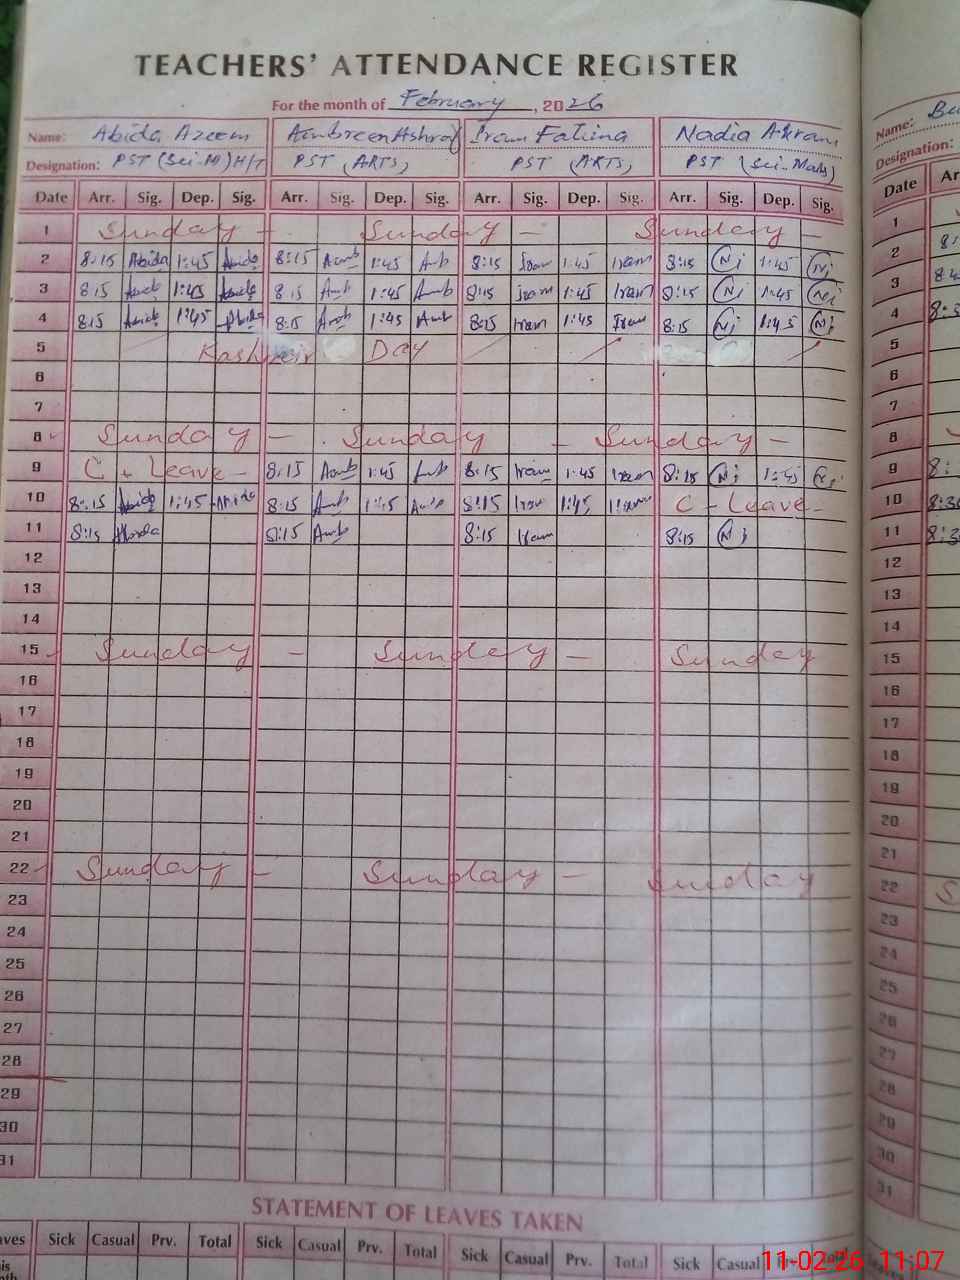 TEACHERS' ATTENDANCE REGISTER
For the month of February, 2026
Name: Abida Azeem Aambreen Ashraf Iram Fatima Nadia Akram
Designation: PST (Sci-M) H/T PST (ARTS) PST (ARTS) PST (Sci-Math)
Date Arr. Sig. Dep. Sig. Arr. Sig. Dep. Sig. Arr. Sig. Dep. Sig. Arr. Sig. Dep. Sig.
1 Sunday - Sunday - Sunday -
2 8:15 Abida 1:45 Abida 8:15 Aamb 1:45 Amb 8:15 Iram 1:45 Iram 8:15 Nj 1:45 Nj
3 8:15 Abida 1:45 Abida 8:15 Amb 1:45 Amb 8:15 Iram 1:45 Iram 8:15 Nj 1:45 Nj
4 8:15 Abida 1:45 Abida 8:15 Amb 1:45 Amb 8:15 Iram 1:45 Iram 8:15 Nj 1:45 Nj
5 Kashmir Day
6
7
8 Sunday - Sunday - Sunday -
9 C - Leave - 8:15 Aamb 1:45 Amb 8:15 Iram 1:45 Iram 8:15 Nj 1:45 Nj
10 8:15 Abida 1:45 Abida 8:15 Amb 1:45 Amb 8:15 Iram 1:45 Iram C - Leave -
11 8:15 Abida 8:15 Amb 8:15 Iram 8:15 Nj
12
13
14
15 Sunday - Sunday - Sunday
16
17
18
19
20
21
22 Sunday - Sunday - Sunday
23
24
25
26
27
28
29
30
31
STATEMENT OF LEAVES TAKEN
Sick Casual Prv. Total Sick Casual Prv. Total Sick Casual Prv. Total Sick Casual
11-02-26 11:07
Name:
Designation:
Date
1
2
3
4
5
6
7
8
9
10
11
12
13
14
15
16
17
18
19
20
21
22
23
24
25
26
27
28
29
30
31